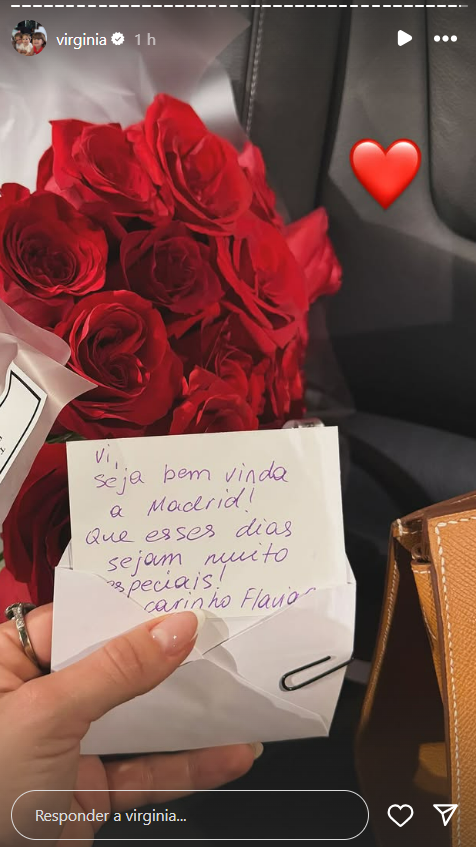 virginia 1 h
vi,
seja bem vinda
a Madrid!
Que esses dias
sejam muito
especiais!
carinho Flavia
Responder a virginia...